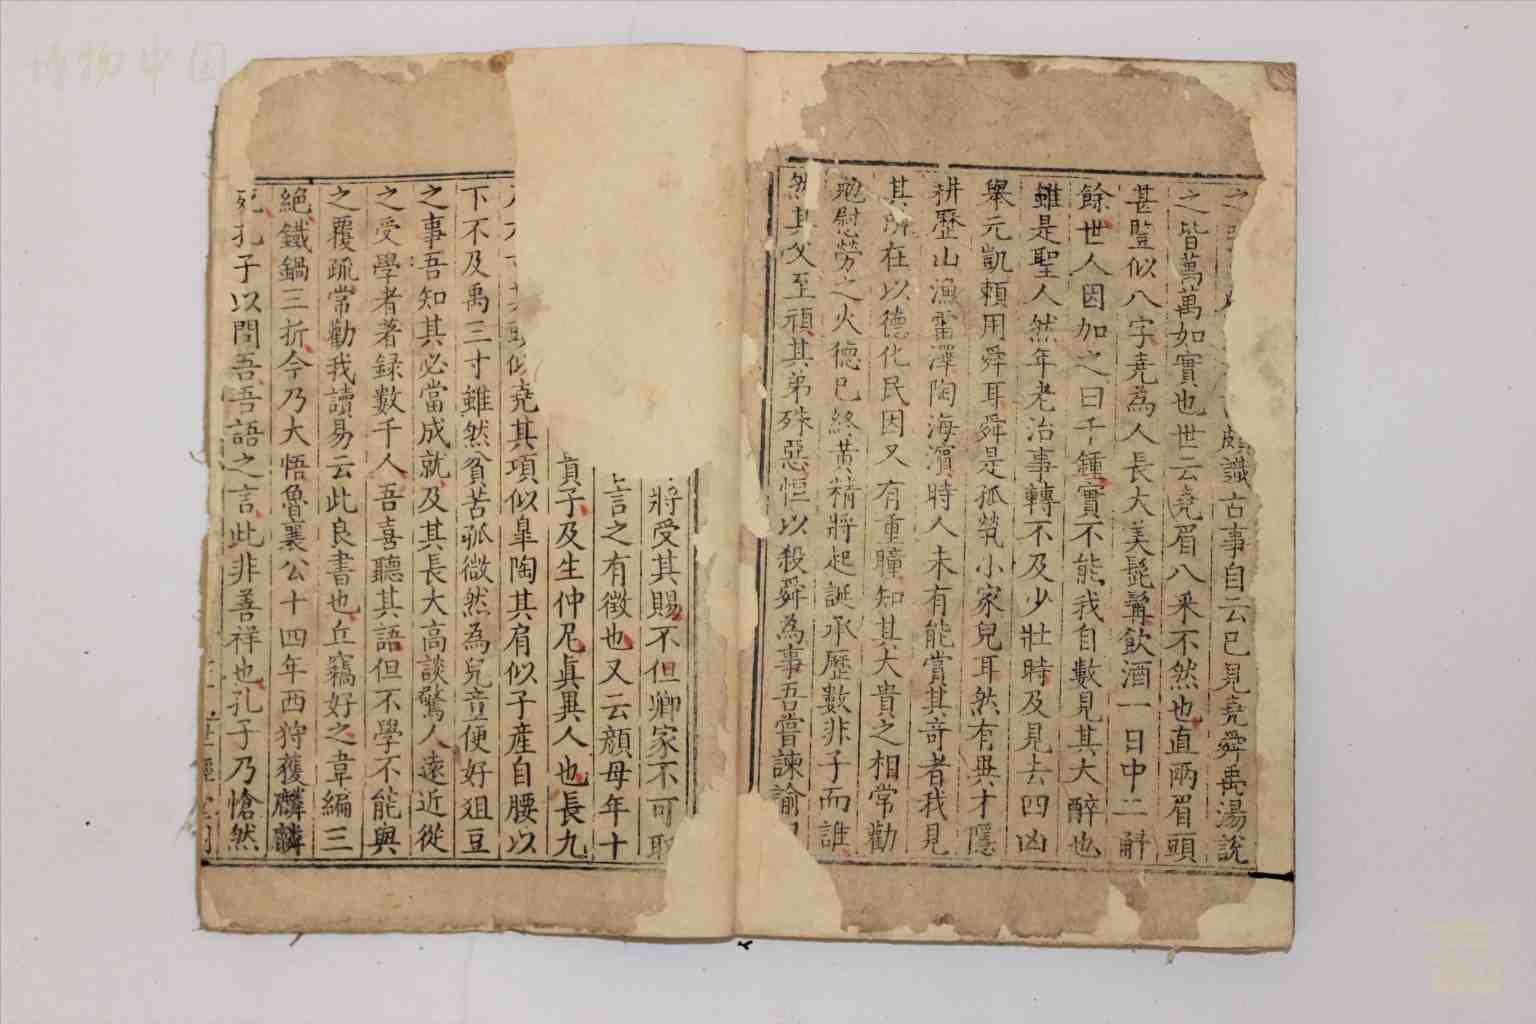 博物中国
之
識古事自云已見堯舜禹湯說
之皆萬萬如實也世云堯眉八采不然也直兩眉頭
甚豎似八字堯為人長大美髭髯飲酒一日中二斛
餘世人因加之曰千鍾實不能我自數見其大醉也
雖是聖人然年老治事轉不及少壯時及見去四凶
舉元凱賴用舜耳舜是孤煢小家兒耳然有異才隱
耕歷山漁雷澤陶海濵時人未有能賞其奇者我見
其所在以德化民因又有重瞳知其大貴之相常勸
勉慰勞之火德已終黃精將起誕承歷數非子而誰
然其父至頑其弟殊惡恒以殺舜為事吾嘗諫諭
將受其賜不但卿家不可取
言之有徵也又云顏母年十
貢子及生仲尼眞異人也長九
似堯其項似皐陶其肩似子產自腰以
下不及禹三寸雖然貧苦孤微然為兒童便好爼豆
之事吾知其必當成就及其長大高談驚人遠近從
之受學者著録數千人吾喜聽其語但不學不能與
之覆疏常勸我讀易云此良書也丘竊好之韋編三
絕鐵鍋三折今乃大悟魯襄公十四年西狩獲麟麟
死孔子以問吾吾語之言此非善祥也孔子乃愴然